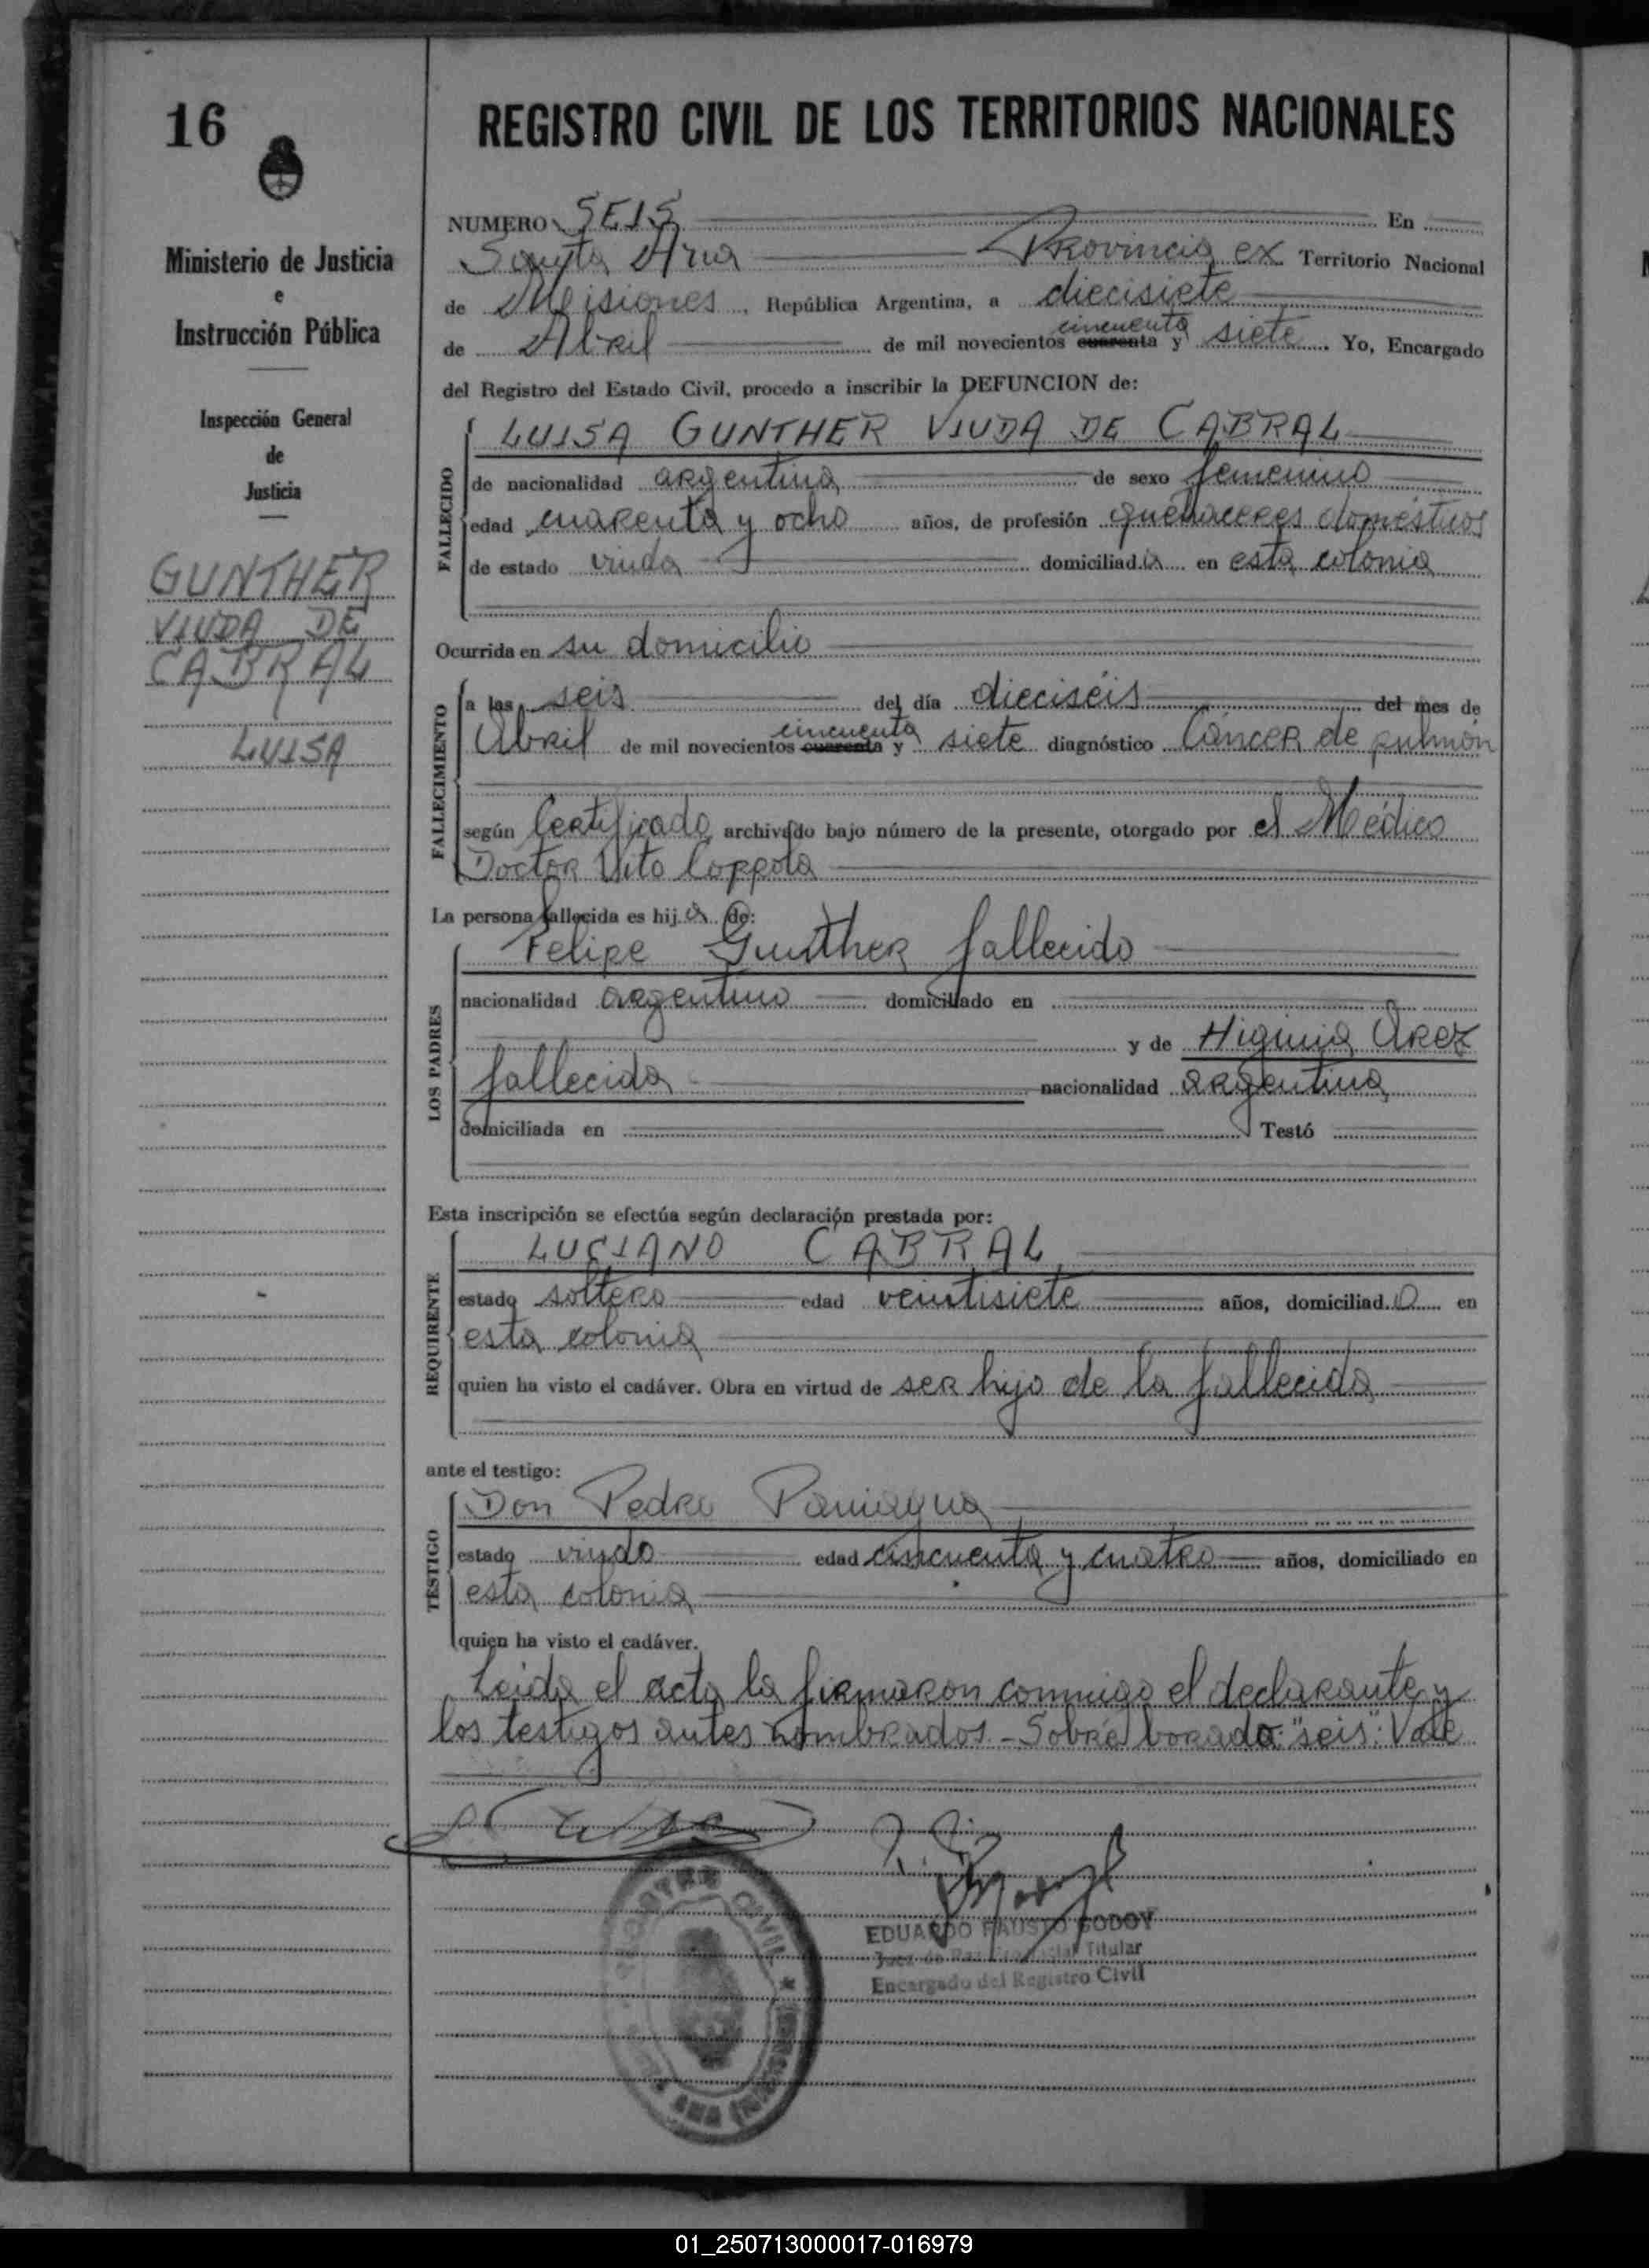 16
REGISTRO CIVIL DE LOS TERRITORIOS NACIONALES
Ministerio de Justicia
e
Instrucción Pública
Inspección General
de
Justicia
GUNTHER
VIUDA DE
CABRAL
LUISA
NUMERO SEIS En
Santa Ana Provincia ex Territorio Nacional
de Misiones, República Argentina, a diecisiete
cincuenta
de Abril de mil novecientos cuarenta y siete. Yo, Encargado
del Registro del Estado Civil, procedo a inscribir la DEFUNCION de:
FALLECIDO
LUISA GUNTHER VIUDA DE CABRAL
de nacionalidad argentina de sexo femenino
edad cuarenta y ocho años, de profesión quehaceres domésticos
de estado viuda domiciliada en esta colonia
Ocurrida en su domicilio
FALLECIMIENTO
a las seis del día dieciseis del mes de
cincuenta
Abril de mil novecientos cuarenta y siete diagnóstico Cáncer de pulmón
según Certificado archivado bajo número de la presente, otorgado por el Médico
Doctor Vito Coppola
La persona fallecida es hija de:
LOS PADRES
Felipe Gunther fallecido
nacionalidad argentino domiciliado en
y de Higinia Arez
fallecida nacionalidad argentina
domiciliada en Testó
Esta inscripción se efectúa según declaración prestada por:
REQUIRENTE
LUCIANO CABRAL
estado soltero edad veintisiete años, domiciliado en
esta colonia
quien ha visto el cadáver. Obra en virtud de ser hijo de la fallecida
ante el testigo:
TESTIGO
Don Pedro Paniagua
estado viudo edad cincuenta y cuatro años, domiciliado en
esta colonia
quien ha visto el cadáver.
Leida el acta la firmaron conmigo el declarante y
los testigos antes nombrados.-Sobre borado: "seis": Vale
EDUARDO FAUSTO GODOY
Juez de Paz Titular
Encargado del Registro Civil
REGISTRO CIVIL
SANTA ANA (MISIONES)
01_250713000017-016979